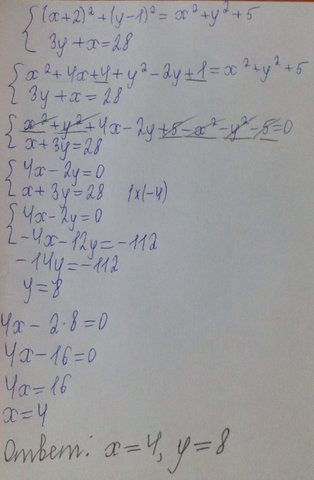 {(x+2)²+(y-1)²=x²+y²+5
{3y+x=28
{x²+4x+4+y²-2y+1=x²+y²+5
{3y+x=28
{x²+y²+4x-2y+5-x²-y²-5=0
{x+3y=28
{4x-2y=0
{x+3y=28 |x(-4)
{4x-2y=0
{-4x-12y=-112
-14y=-112
y=8
4x-2·8=0
4x-16=0
4x=16
x=4
Ответ: x=4, y=8